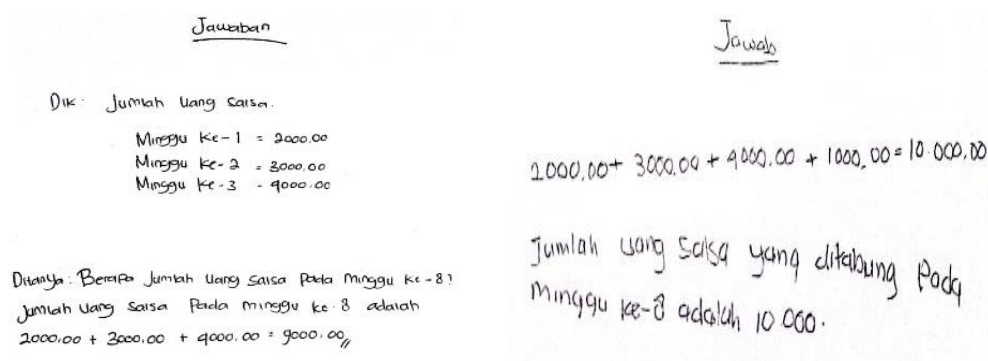 Jawaban
Dik : Jumlah Uang Salsa.
Minggu Ke-1 = 2000.00
Minggu Ke-2 = 3000.00
Minggu Ke-3 = 4000.00
Ditanya : Berapa Jumlah Uang Salsa Pada Minggu Ke-8?
Jumlah Uang Salsa Pada minggu ke.8 adalah
2000,00 + 3000.00 + 4000.00 = 9000.00,,
Jawab
2000,00 + 3000.00 + 4000.00 + 1000,00 = 10.000,00
Jumlah uang Salsa yang ditabung Pada
Minggu ke-8 adalah 10 000.